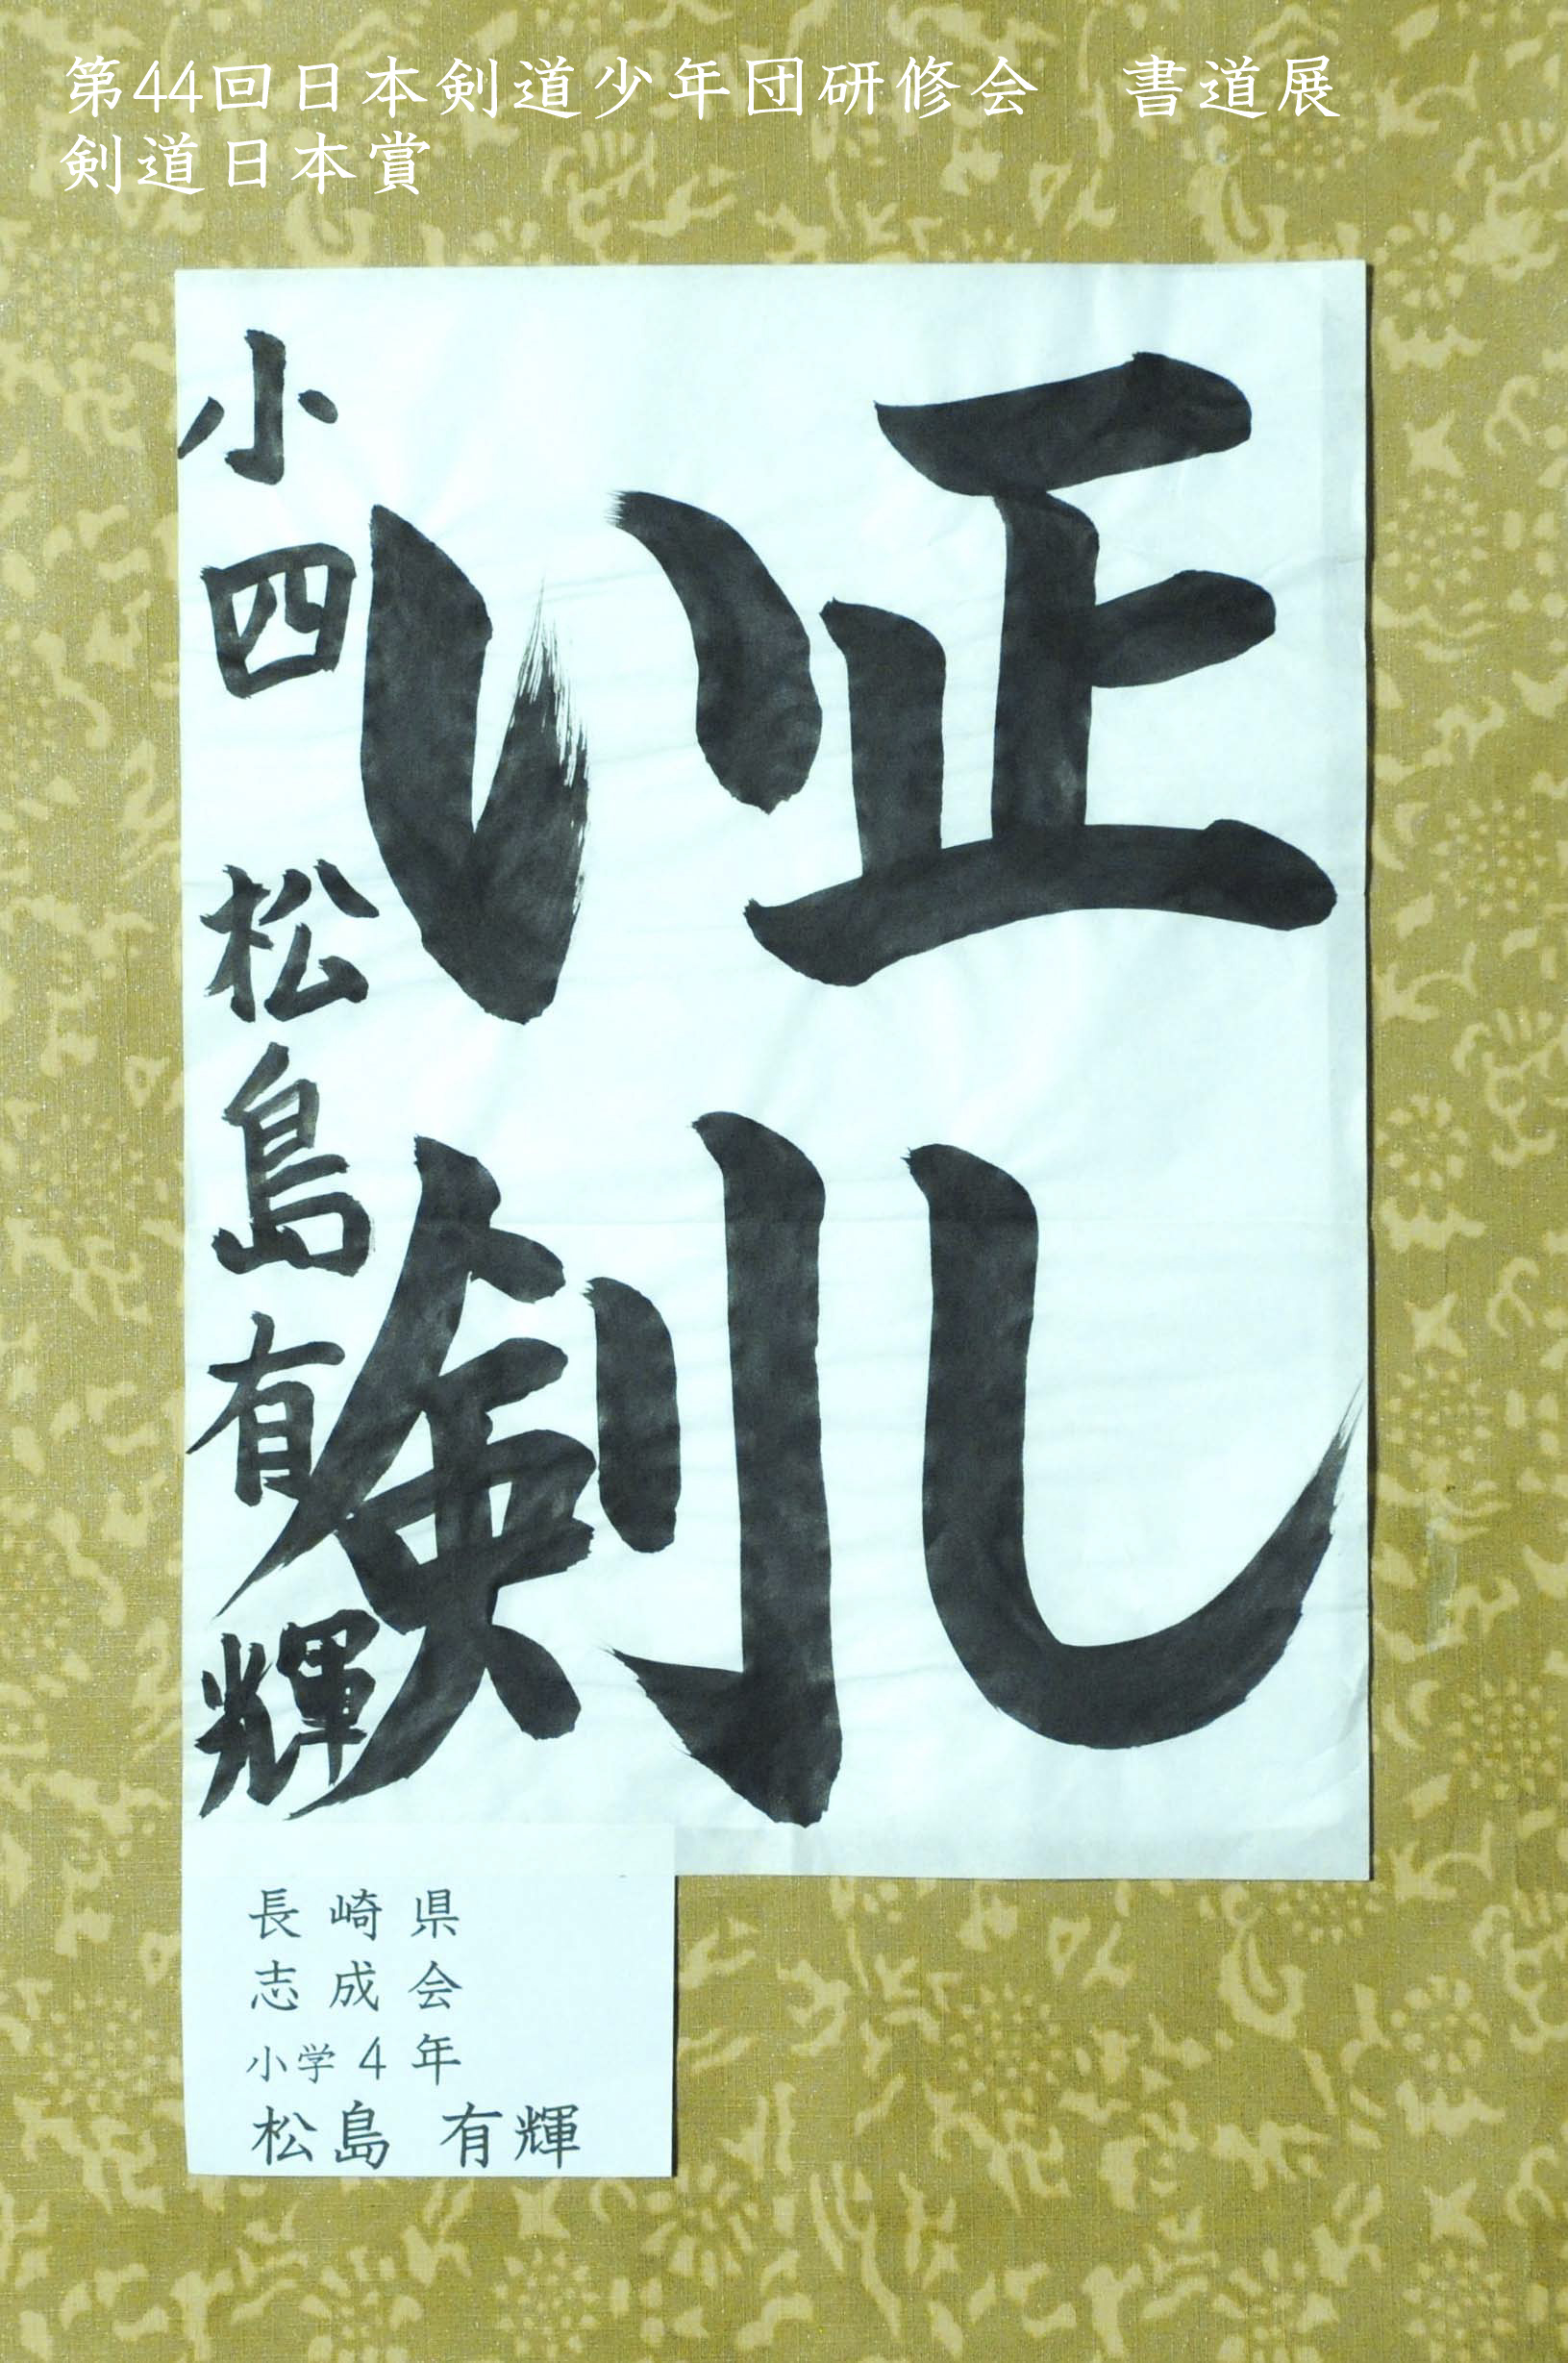 第44回日本剣道少年団研修会　書道展
剣道日本賞
正し
い剣
小四 松島有輝
長崎県
志成会
小学4年
松島 有輝